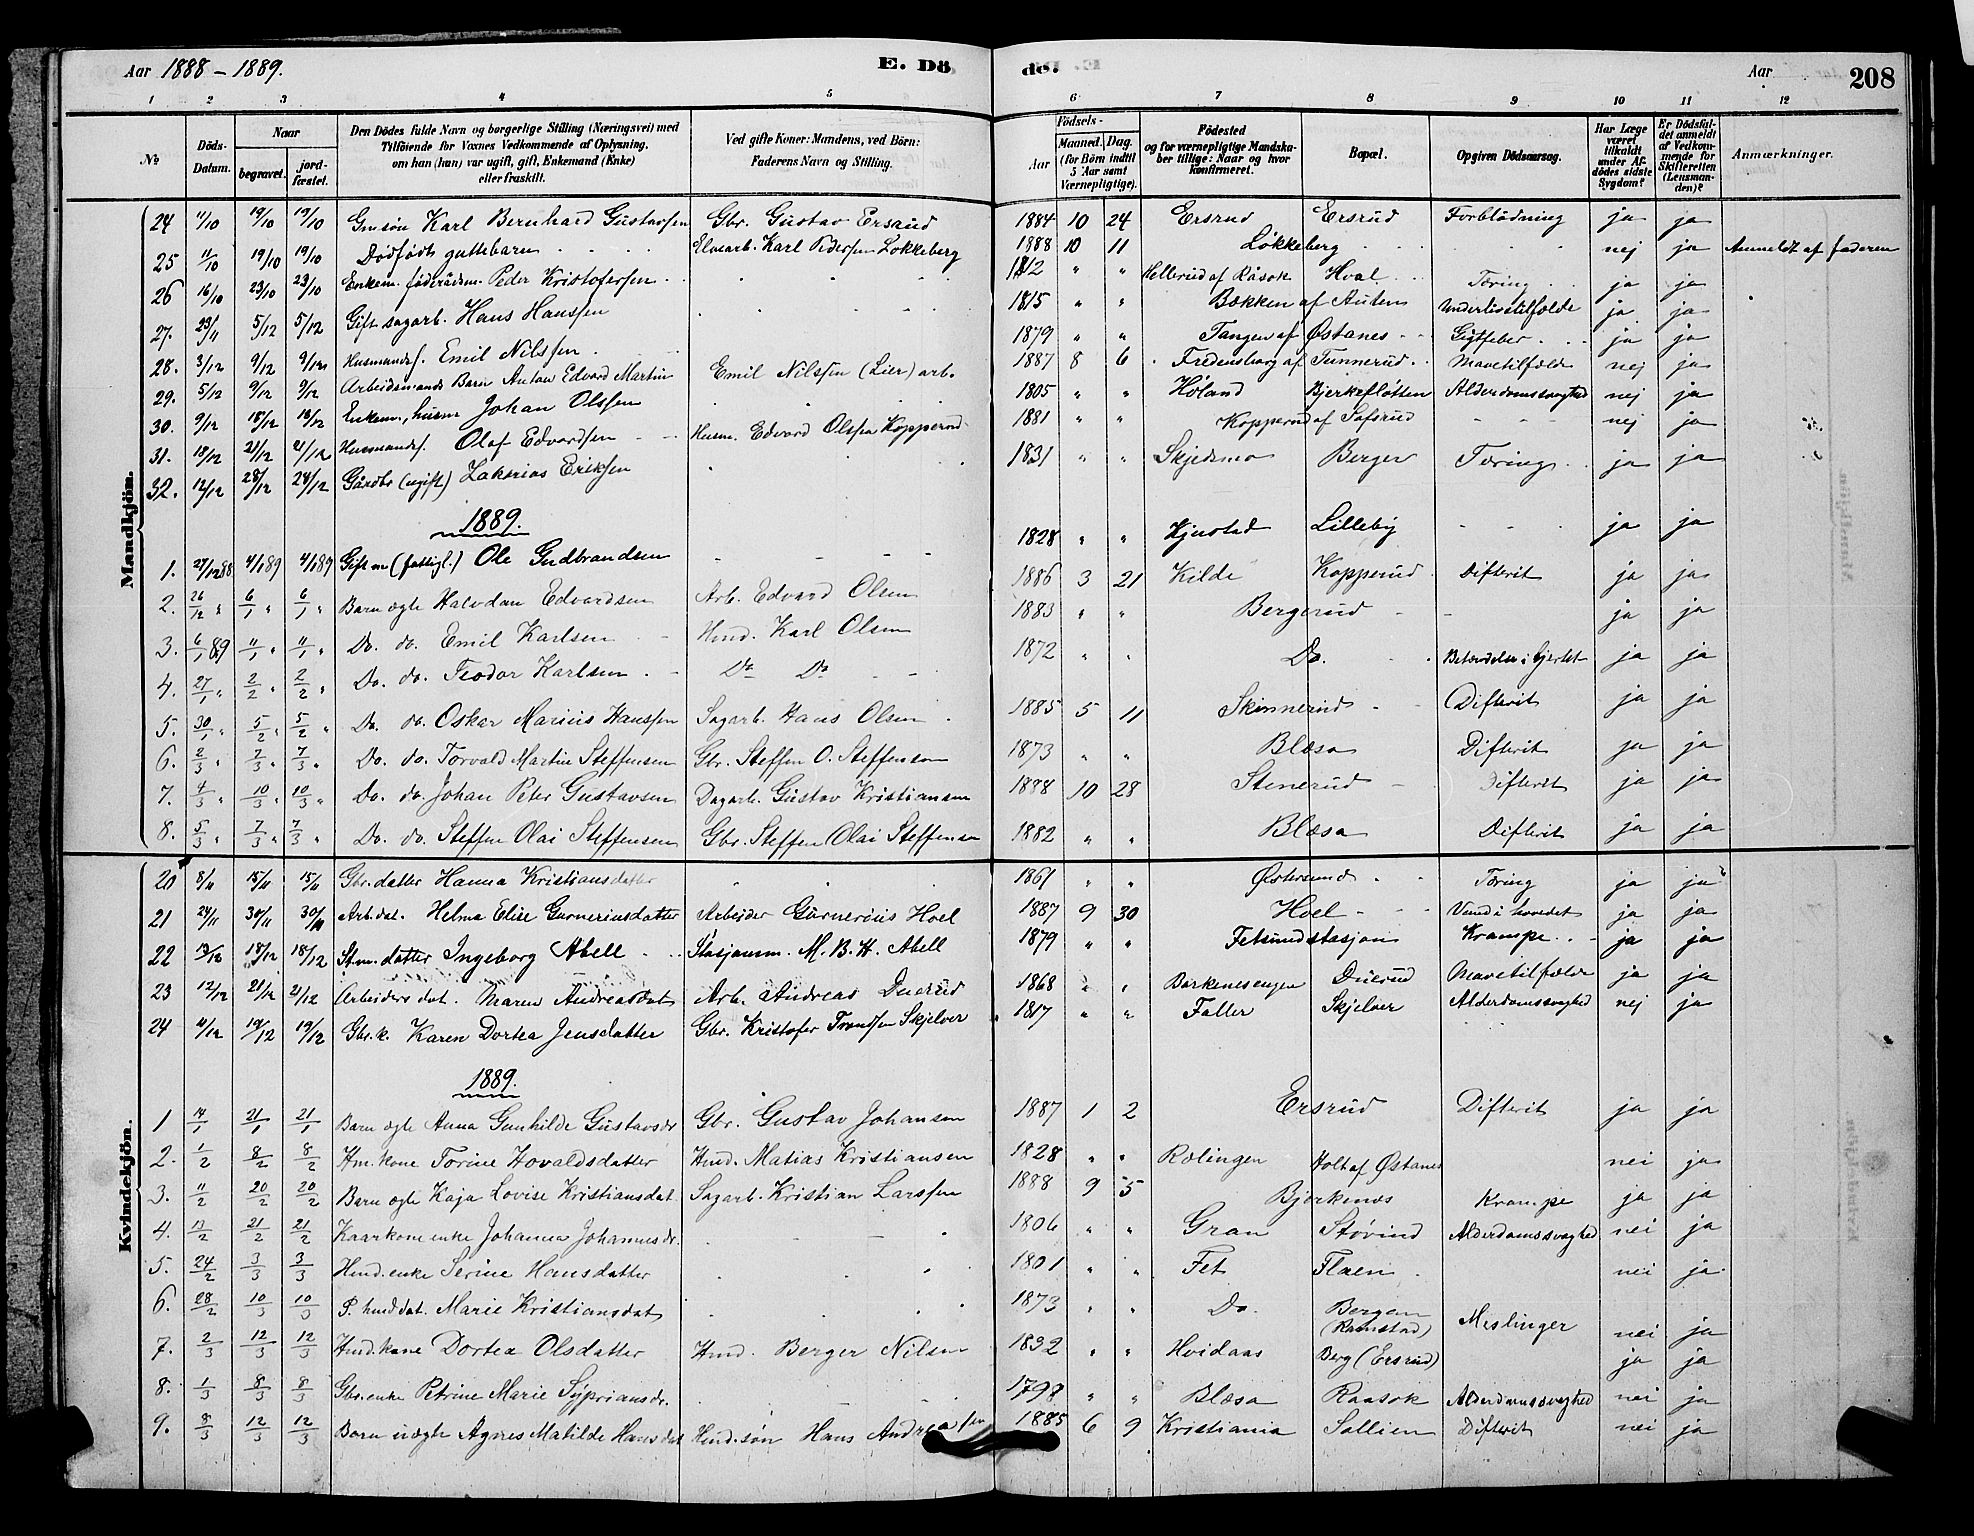 Aar 1888 - 1889.
E. Dö
de.
Aar
208
1 2 3 4 5 6 7 8 9 10 11 12
№
Döds-Datum.
Naar
begravet.
jord-fæstet.
Den Dödes fulde Navn og borgerlige Stilling (Næringsvei) med
Tilföiende for Voxnes Vedkommende af Oplysning,
om han (hun) var ugift, gift, Enkemand (Enke)
eller fraskilt.
Ved gifte Koner: Mandens, ved Börn:
Faderens Navn og Stilling.
Födsels-
Aar
Maaned. Dag.
(for Börn indtil
5 Aar samt
Værnepligtige).
Födested
og for værnepligtige Mandska-
ber tillige: Naar og hvor
konfirmeret.
Bopæl.
Opgiven Dödsaarsag.
Har Læge
været
tilkaldt
under Af-
dödes sidste
Sygdom?
Er Dödsfal-
det anmeldt
af Vedkom-
mende for
Skifteretten
(Lensman-
den)?
Anmærkninger.
Mandkjön.
24 11/10 19/10 19/10 Gmsøn Karl Bernhard Gustavsen Gbr. Gustav Ersrud 1884 10 24 Ersrud Ersrud Forblødning ja ja
25 11/10 19/10 19/10 Dødfødt guttebarn Karl Pedersen Løkkeberg 1888 10 11 Løkkeberg nej ja Anmeldt af faderen
26 16/10 23/10 23/10 Enkem. føderådsm. Peder Kristofersen 1812 " " Hellerud af Råsok Hval Tæring ja ja
27. 23/11 5/12 5/12 Gift sagarb. Hans Hanssen 1815 " " Bækken af Auten Underlivstilfælde ja ja
28. 3/12 9/12 9/12 Husmandss. Emil Nilssen 1879 " " Tangen af Østanes Gigtfeber ja ja
29. 5/12 9/12 9/12 Arbeidsmands Barn Anton Edvard Martin Emil Nilssen (Lier) arb. 1887 8 6 Fredensborg af Tunnerud Mavetilfælde nej ja
30. 9/12 18/12 18/12 Enkem., husm Johan Olssen 1805 " " Høland Bjerkefløtten Alderdomssvaghed nej ja
31. 18/12 21/12 21/12 Husmandss. Olaf Edvardsen Husm. Edvard Olssen Kopperud 1881 " " Kopperud af Søfsrud nej ja
32. 12/12 28/12 28/12 Gårdbr (ugift) Zakarias Eriksen 1831 " " Skjedsmo Berger Tæring ja ja
1889.
1. 27/12 88. 4/1 89 4/1 89 Gift m (fattigl.) Ole Gudbrandsen 1828 " " Hjustad Lilleby ja ja
2. 26/12 " 6/1 " 6/1 " Barn ægte Halvdan Edvardsen Arb. Edvard Olsen 1886 3 21 Kilde Kopperud Difterit ja ja
3. 6/1 89 11/1 " 11/1 " Do. do. Emil Karlsen Hmd. Karl Olsen 1883 " " Bergerud ja ja
4. 27/1 " 2/2 " 2/2 " Do. do. Teodor Karlsen Do Do 1872 " " Do. Betændelse i hjertet ja ja
5. 30/1 " 5/2 " 5/2 " Do. do. Oskar Marius Hanssen Sagarb. Hans Olsen 1885 5 11 Skinnerud Difterit ja ja
6. 2/3 " 7/3 " 7/3 " Do. do. Torvald Martin Steffensen Gbr. Steffen O. Steffensen 1873 " " Blæsa Difterit ja ja
7. 4/3 " 10/3 " 10/3 " Do. do. Johan Peter Gustavsen Dagarb. Gustav Kristiansen 1888 10 28 Stenerud Difterit ja ja
8. 5/3 " 7/3 " 7/3 " Do. do. Steffen Olai Steffensen Gbr. Steffen Olai Steffensen 1882 " " Blæsa Difterit ja ja
Kvindekjön.
20 8/11 15/11 15/11 Gbr. datter Hanna Kristiansdatter 1861 " " Østersund Tæring ja ja
21 24/11 30/11 30/11 Arb.dat. Helma Elise Gunneriusdatter Arbeider Gunnerius Hoel 1887 9 30 Hoel Vand i hovedet ja ja
22 13/12 18/12 18/12 St.m. datter Ingeborg Abell Stasjonsm. M. B. H. Abell 1879 " " Fetsund stasjon Krampe ja ja
23 12/12 21/12 21/12 Arbeiders dat. Maren Andreasdat Arb. Andreas Duerud 1868 " " Borkenesengen Duerud Mavetilfælde ja ja
24 11/12 19/12 19/12 Gbr.k. Karen Dortea Jensdatter Gbr. Kristofer Trondsen Skjelver 1817 " " Faller Skjelver Alderdomssvaghed nej ja
1889.
1 14/1 21/1 21/1 Barn ægte Anna Gunhilde Gustavsdr Gbr. Gustav Johansen 1887 1 2 Ersrud Difterit ja ja
2. 1/2 8/2 8/2 Hm. kone Torine Hovaldsdatter Hmd. Matias Kristiansen 1828 " " Rælingen Holt af Østanes nei ja
3. 11/2 20/2 20/2 Barn ægte Kaja Lovise Kristiansdat. Sagarb. Kristian Larssen 1888 9 5 Bjerkenes Krampe ja ja
4. 13/2 21/2 21/2 Kaarkone enke Johanna Johannesdr. 1806 " " Gran Støvind Alderdomssvaghed nei ja
5. 24/2 3/3 3/3 Hmd. enke Serine Hansdatter 1801 " " Fet Flaen nei ja
6. 28/2 10/3 10/3 P. hmd dat. Marie Kristiansdat 1873 " " Do. Bergan (Ramstad) Meslinger nei ja
7. 2/3 12/3 12/3 Hmd. kone Dortea Olsdatter Hmd. Berger Nilsen 1832 " " Hvidaas Berg (Ersrud) ja ja
8. 1/3 8/3 8/3 Gbr. enke Petrine Marie Syprians dr. 1798 " " Blæsa Raasok Alderdomssvaghed nei ja
9. 8/3 12/3 12/3 Barn uægte Agnes Matilde Hansdat Hmd. søn Hans Andreassen 1885 6 9 Kristiania Sollien Difterit nei ja